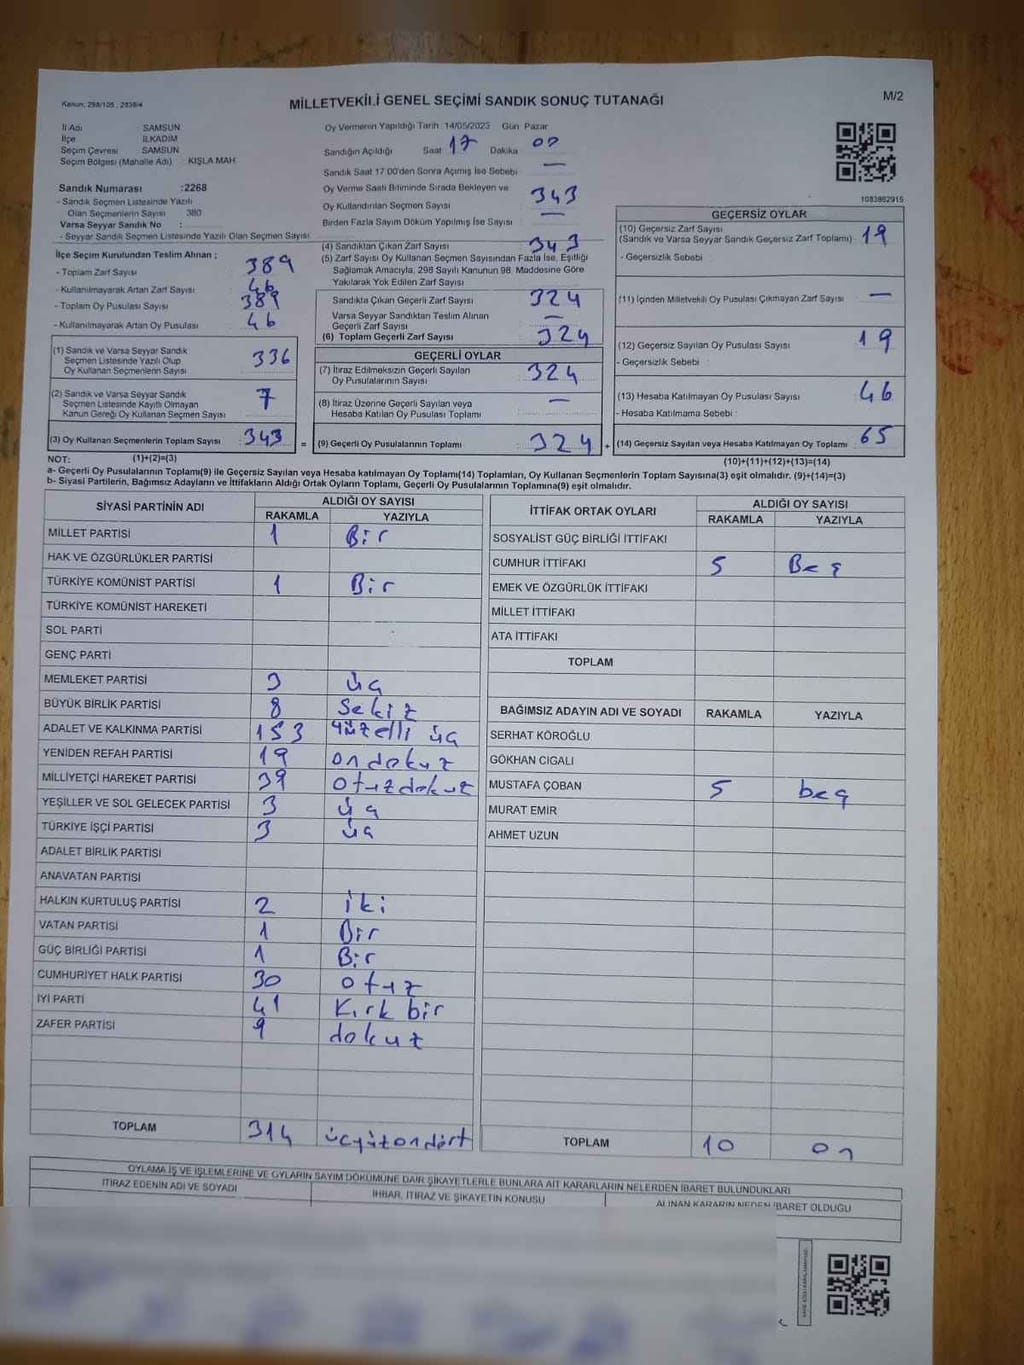 Kanun: 298/105 , 2839/4
MİLLETVEKİLİ GENEL SEÇİMİ SANDIK SONUÇ TUTANAĞI
M/2
İl Adı SAMSUN
İlçe İLKADIM
Seçim Çevresi SAMSUN
Seçim Bölgesi (Mahalle Adı) KIŞLA MAH.
Sandık Numarası :2268
- Sandık Seçmen Listesinde Yazılı
Olan Seçmenlerin Sayısı 380
Varsa Seyyar Sandık No :
- Seyyar Sandık Seçmen Listesinde Yazılı Olan Seçmen Sayısı
Oy Vermenin Yapıldığı Tarih :14/05/2023 Gün Pazar
Sandığın Açıldığı Saat 17 Dakika 00
Sandık Saat 17.00'den Sonra Açılmış İse Sebebi —
Oy Verme Saati Bitiminde Sırada Bekleyen ve
Oy Kullandırılan Seçmen Sayısı 343
Birden Fazla Sayım Döküm Yapılmış İse Sayısı —
1083862915
İlçe Seçim Kurulundan Teslim Alınan ;
- Toplam Zarf Sayısı 389
- Kullanılmayarak Artan Zarf Sayısı 46
- Toplam Oy Pusulası Sayısı 389
- Kullanılmayarak Artan Oy Pusulası 46
(1) Sandık ve Varsa Seyyar Sandık
Seçmen Listesinde Yazılı Olup
Oy Kullanan Seçmenlerin Sayısı 336
(2) Sandık ve Varsa Seyyar Sandık
Seçmen Listesinde Kayıtlı Olmayan
Kanun Gereği Oy Kullanan Seçmen Sayısı 7
(3) Oy Kullanan Seçmenlerin Toplam Sayısı : 343 =
(4) Sandıktan Çıkan Zarf Sayısı 343
(5) Zarf Sayısı Oy Kullanan Seçmen Sayısından Fazla İse, Eşitliği
Sağlamak Amacıyla, 298 Sayılı Kanunun 98. Maddesine Göre
Yakılarak Yok Edilen Zarf Sayısı
Sandıkta Çıkan Geçerli Zarf Sayısı 324
Varsa Seyyar Sandıktan Teslim Alınan
Geçerli Zarf Sayısı —
(6) Toplam Geçerli Zarf Sayısı 324
GEÇERLİ OYLAR
(7) İtiraz Edilmeksizin Geçerli Sayılan
Oy Pusulalarının Sayısı 324
(8) İtiraz Üzerine Geçerli Sayılan veya
Hesaba Katılan Oy Pusulası Toplamı —
(9) Geçerli Oy Pusulalarının Toplamı 324 +
GEÇERSİZ OYLAR
(10) Geçersiz Zarf Sayısı
(Sandık ve Varsa Seyyar Sandık Geçersiz Zarf Toplamı) 19
- Geçersizlik Sebebi
(11) İçinden Milletvekili Oy Pusulası Çıkmayan Zarf Sayısı —
(12) Geçersiz Sayılan Oy Pusulası Sayısı 19
- Geçersizlik Sebebi :
(13) Hesaba Katılmayan Oy Pusulası Sayısı 46
- Hesaba Katılmama Sebebi :
(14) Geçersiz Sayılan veya Hesaba Katılmayan Oy Toplamı 65
NOT: (1)+(2)=(3) (10)+(11)+(12)+(13)=(14)
a- Geçerli Oy Pusulalarının Toplamı(9) ile Geçersiz Sayılan veya Hesaba katılmayan Oy Toplamı(14) Toplamları, Oy Kullanan Seçmenlerin Toplam Sayısına(3) eşit olmalıdır. (9)+(14)=(3)
b- Siyasi Partilerin, Bağımsız Adayların ve İttifakların Aldığı Ortak Oyların Toplamı, Geçerli Oy Pusulalarının Toplamına(9) eşit olmalıdır.
SİYASİ PARTİNİN ADI ALDIĞI OY SAYISI
RAKAMLA YAZIYLA
MİLLET PARTİSİ 1 Bir
HAK VE ÖZGÜRLÜKLER PARTİSİ
TÜRKİYE KOMÜNİST PARTİSİ 1 Bir
TÜRKİYE KOMÜNİST HAREKETİ
SOL PARTİ
GENÇ PARTİ
MEMLEKET PARTİSİ 3 üç
BÜYÜK BİRLİK PARTİSİ 8 Sekiz
ADALET VE KALKINMA PARTİSİ 153 yüzelli üç
YENİDEN REFAH PARTİSİ 19 ondokuz
MİLLİYETÇİ HAREKET PARTİSİ 39 otuzdokuz
YEŞİLLER VE SOL GELECEK PARTİSİ 3 üç
TÜRKİYE İŞÇİ PARTİSİ 3 üç
ADALET BİRLİK PARTİSİ
ANAVATAN PARTİSİ
HALKIN KURTULUŞ PARTİSİ 2 iki
VATAN PARTİSİ 1 Bir
GÜÇ BİRLİĞİ PARTİSİ 1 Bir
CUMHURİYET HALK PARTİSİ 30 otuz
İYİ PARTİ 41 Kırk bir
ZAFER PARTİSİ 9 dokuz
TOPLAM 314 üçyüzondört
İTTİFAK ORTAK OYLARI ALDIĞI OY SAYISI
RAKAMLA YAZIYLA
SOSYALİST GÜÇ BİRLİĞİ İTTİFAKI
CUMHUR İTTİFAKI 5 Beş
EMEK VE ÖZGÜRLÜK İTTİFAKI
MİLLET İTTİFAKI
ATA İTTİFAKI
TOPLAM
BAĞIMSIZ ADAYIN ADI VE SOYADI RAKAMLA YAZIYLA
SERHAT KÖROĞLU
GÖKHAN CIGALI
MUSTAFA ÇOBAN 5 beş
MURAT EMIR
AHMET UZUN
TOPLAM 10 on
OYLAMA İŞ VE İŞLEMLERİNE VE OYLARIN SAYIM DÖKÜMÜNE DAİR ŞİKAYETLERLE BUNLARA AİT KARARLARIN NELERDEN İBARET BULUNDUKLARI
İTİRAZ EDENİN ADI VE SOYADI İHBAR, İTİRAZ VE ŞİKAYETİN KONUSU ALINAN KARARIN NEDEN İBARET OLDUĞU